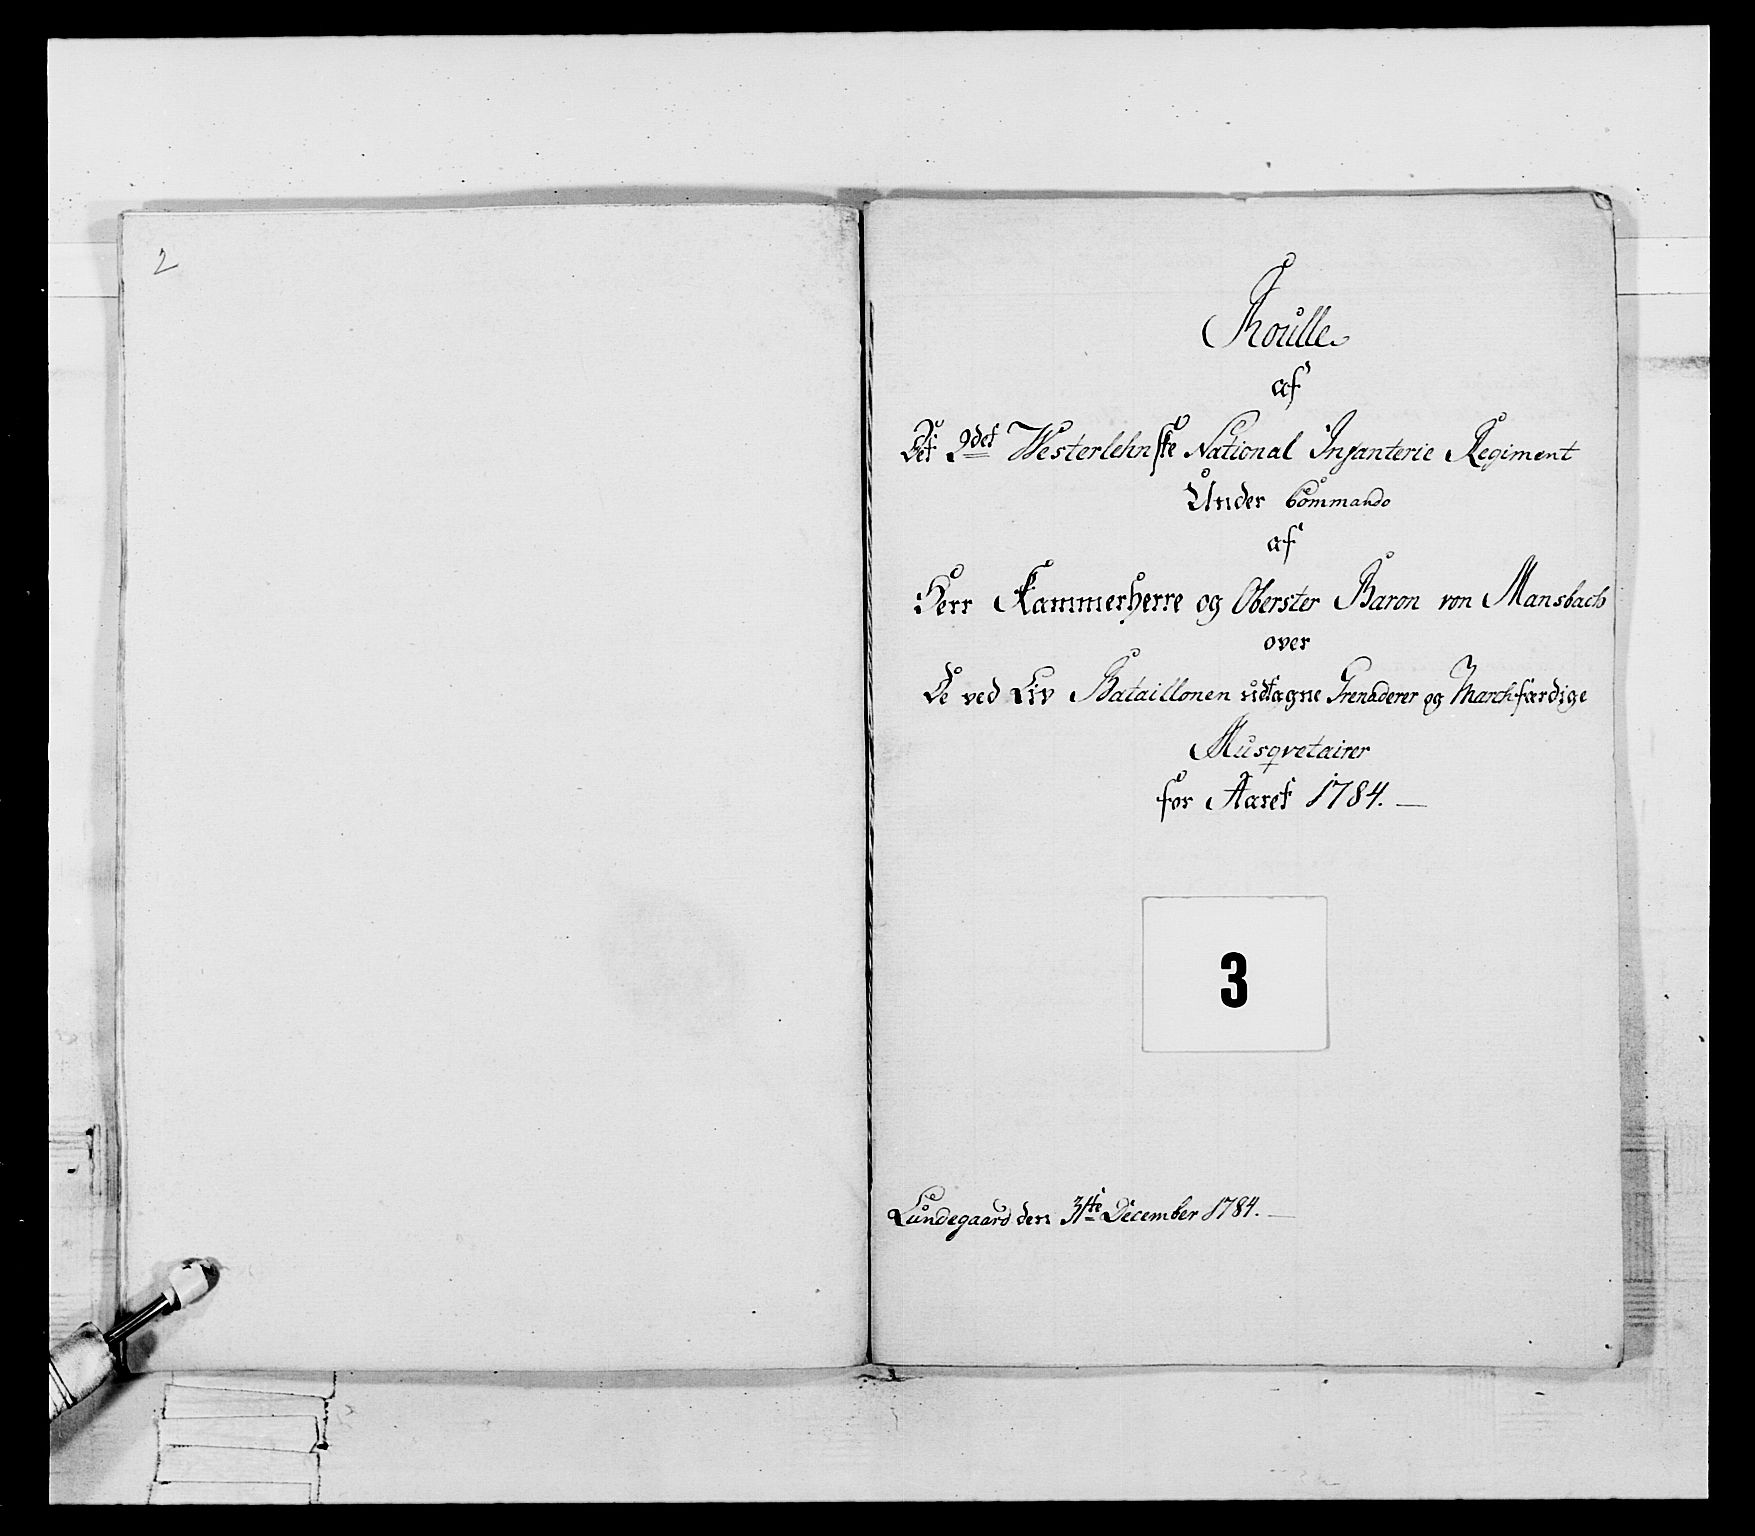 2
Roulle
af
Det 2det Westerlehnske National Infanterie Regiment
Under Commando
af
Herr Kammerherre og Oberster Baron von Mansbach
over
De ved Liv Bataillonen udtagne Grenaderer og Marchfærdige
Musqvetairer
for Aaret 1784.
3
Lundegaard den 31te December 1784.